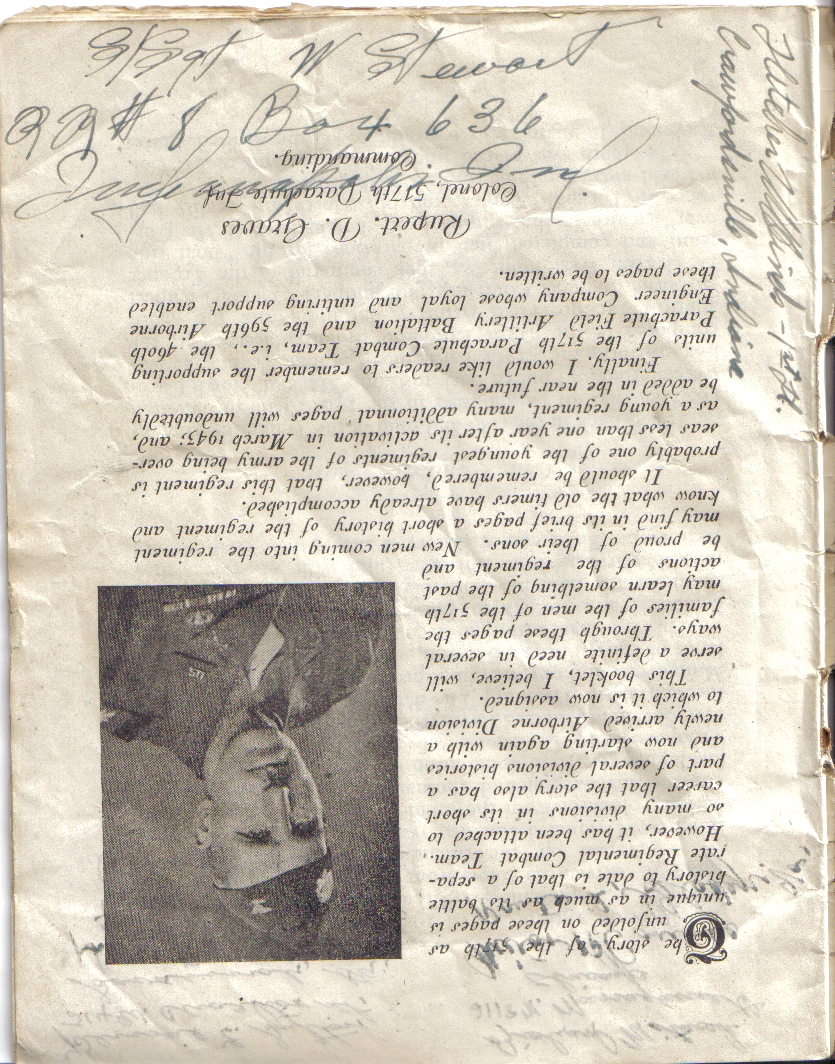 The story of the 517th as
unfolded on these pages is
unique in as much as its battle
history to date is that of a sepa-
rate Regimental Combat Team.
However, it has been attached to
so many divisions in its short
career that the story also has a
part of several divisions histories
and now starting again with a
newly arrived Airborne Division
to which it is now assigned.
This booklet, I believe, will
serve a definite need in several
ways. Through these pages the
families of the men of the 517th
may learn something of the past
actions of the regiment and
be proud of their sons. New men coming into the regiment
may find in its brief pages a short history of the regiment and
know what the old timers have already accomplished.
It should be remembered, however, that this regiment is
probably one of the youngest regiments of the army being over-
seas less than one year after its activation in March 1943; and,
as a young regiment, many additionnal pages will undoubtedly
be added in the near future.
Finally, I would like readers to remember the supporting
units of the 517th Parachute Combat Team, i.e., the 460th
Parachute Field Artillery Battalion and the 596th Airborne
Engineer Company whose loyal and untiring support enabled
these pages to be written.
Rupert. D. Graves
Colonel, 517th Parachute Inf.
Commanding.
W Stewart
RR # 8 Box 636
Indianapolis Ind.
Crawfordsville, Indiana